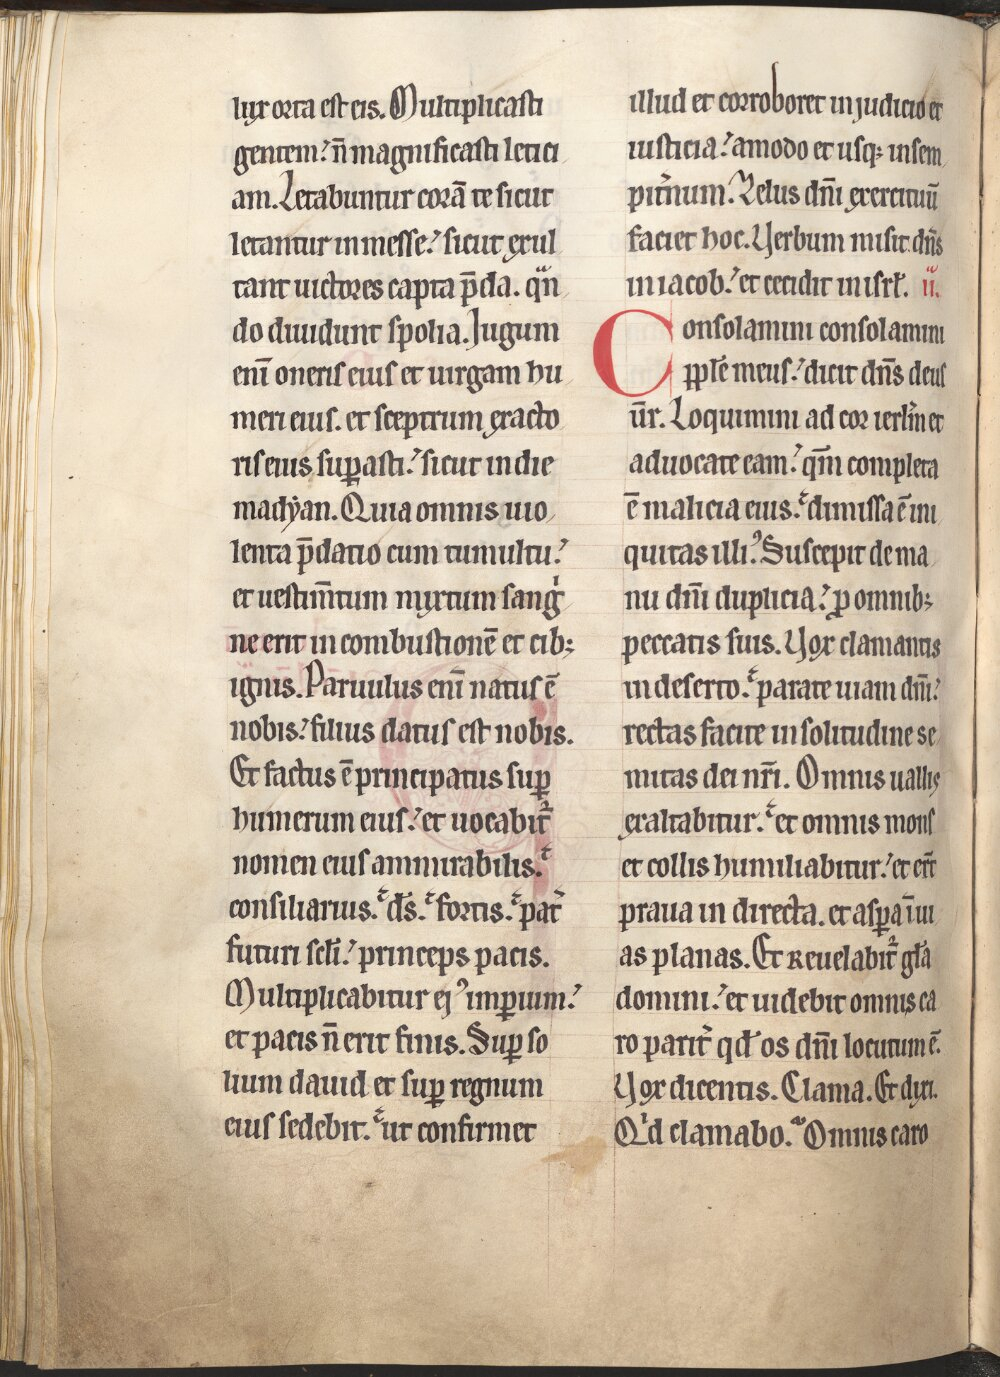 lux orta est eis. Multiplicasti
gentem: n̄ magnificasti leticı
am. Letabuntur corā te sicut
letantur in messe: sicut exul
tant uictores capta p̄da. qn̄
do diuidunt spolia. Jugum
enī oneris eius et uirgam hu
meri eius. et sceptrum exacto
ris eius suꝑasti: sicut in die
madẏan. Quia omnis uio
lenta p̄datio cum tumultu:
et uestim̄tum mixtum sangͥ
ne erit in combustionē et cib;
ignis. Paruulus enī natus ē
nobis: filius datus est nobis.
Et factus ē principatus suꝑ
humerum eius: et uocabit᷑
nomen eius ammirabilis.
consiliarius. ds̄. fortis. pat̾
futuri scl̄i: princeps pacis.
Multiplicabitur eiꝰ imꝑium:
et pacis n̄ erit finis. Suꝑ so
lium dauid et suꝑ regnum
eius sedebit. ut confirmet
illud et corroboret in judicio et
iusticia: amodo et usq; in sem
pit̾num. Zelus dn̄i exercituū
faciet hoc. Verbum misit dn̄s
in iacob: et cecidit in isrł. ii.
Consolamini consolamini
pple̅ meus: dicit dn̄s deus
ūr. Loquimini ad cor ierl̄m et
aduocate eam: qm̄ completa
ē malicia eius. dimissa ē ini
quitas illiꝰ. Suscepit de ma
nu dn̄i duplicia: ꝓ omnib;
peccatis suis. Vox clamantis
in deserto. parate uiam dn̄i:
rectas facite in solitudine se
mitas dei nr̄i. Omnis uallis
exaltabitur. et omnis mons
et collis humiliabitur: et er̄t
praua in directa. et asꝑa ī ui
as planas. Et reuelabit᷑ gl̄a
domini: et uidebit omnis ca
ro parit̾ qd̄ os dn̄i locutum ē.
Vox dicentis. Clama. Et dixi.
Qͥd clamabo. Omnis caro